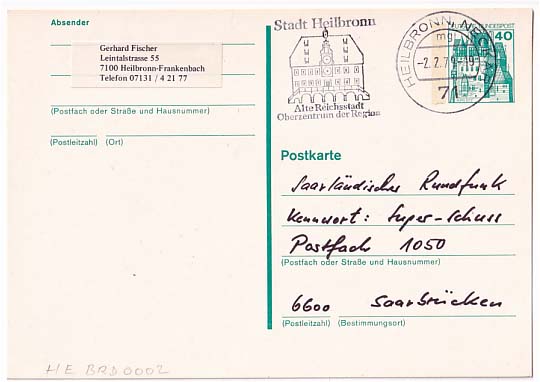 Absender
Gerhard Fischer
Leintalstrasse 55
7100 Heilbronn-Frankenbach
Telefon 07131 / 4 21 77
(Postfach oder Straße und Hausnummer)
(Postleitzahl) (Ort)
Stadt Heilbronn
Alte Reichsstadt
Oberzentrum der Region
HEILBRONN, NECKAR
mg
-2.2.79-19
71
DEUTSCHE BUNDESPOST
40
Postkarte
Saarländischer Rundfunk
Kennwort: Super-Schuss
Postfach 1050
(Postfach oder Straße und Hausnummer)
6600 Saarbrücken
(Postleitzahl) (Bestimmungsort)
HE BRD0002